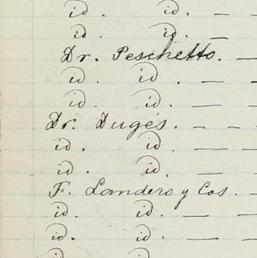 id. id. —
id. id. —
Dr. Peschetto. —
id. id. —
id. id. —
Dr. Dugés. — — —
id. id. — —
id. id. — —
F. Landero y Cos. —
id. id. — —
id. id. — —
id. id.